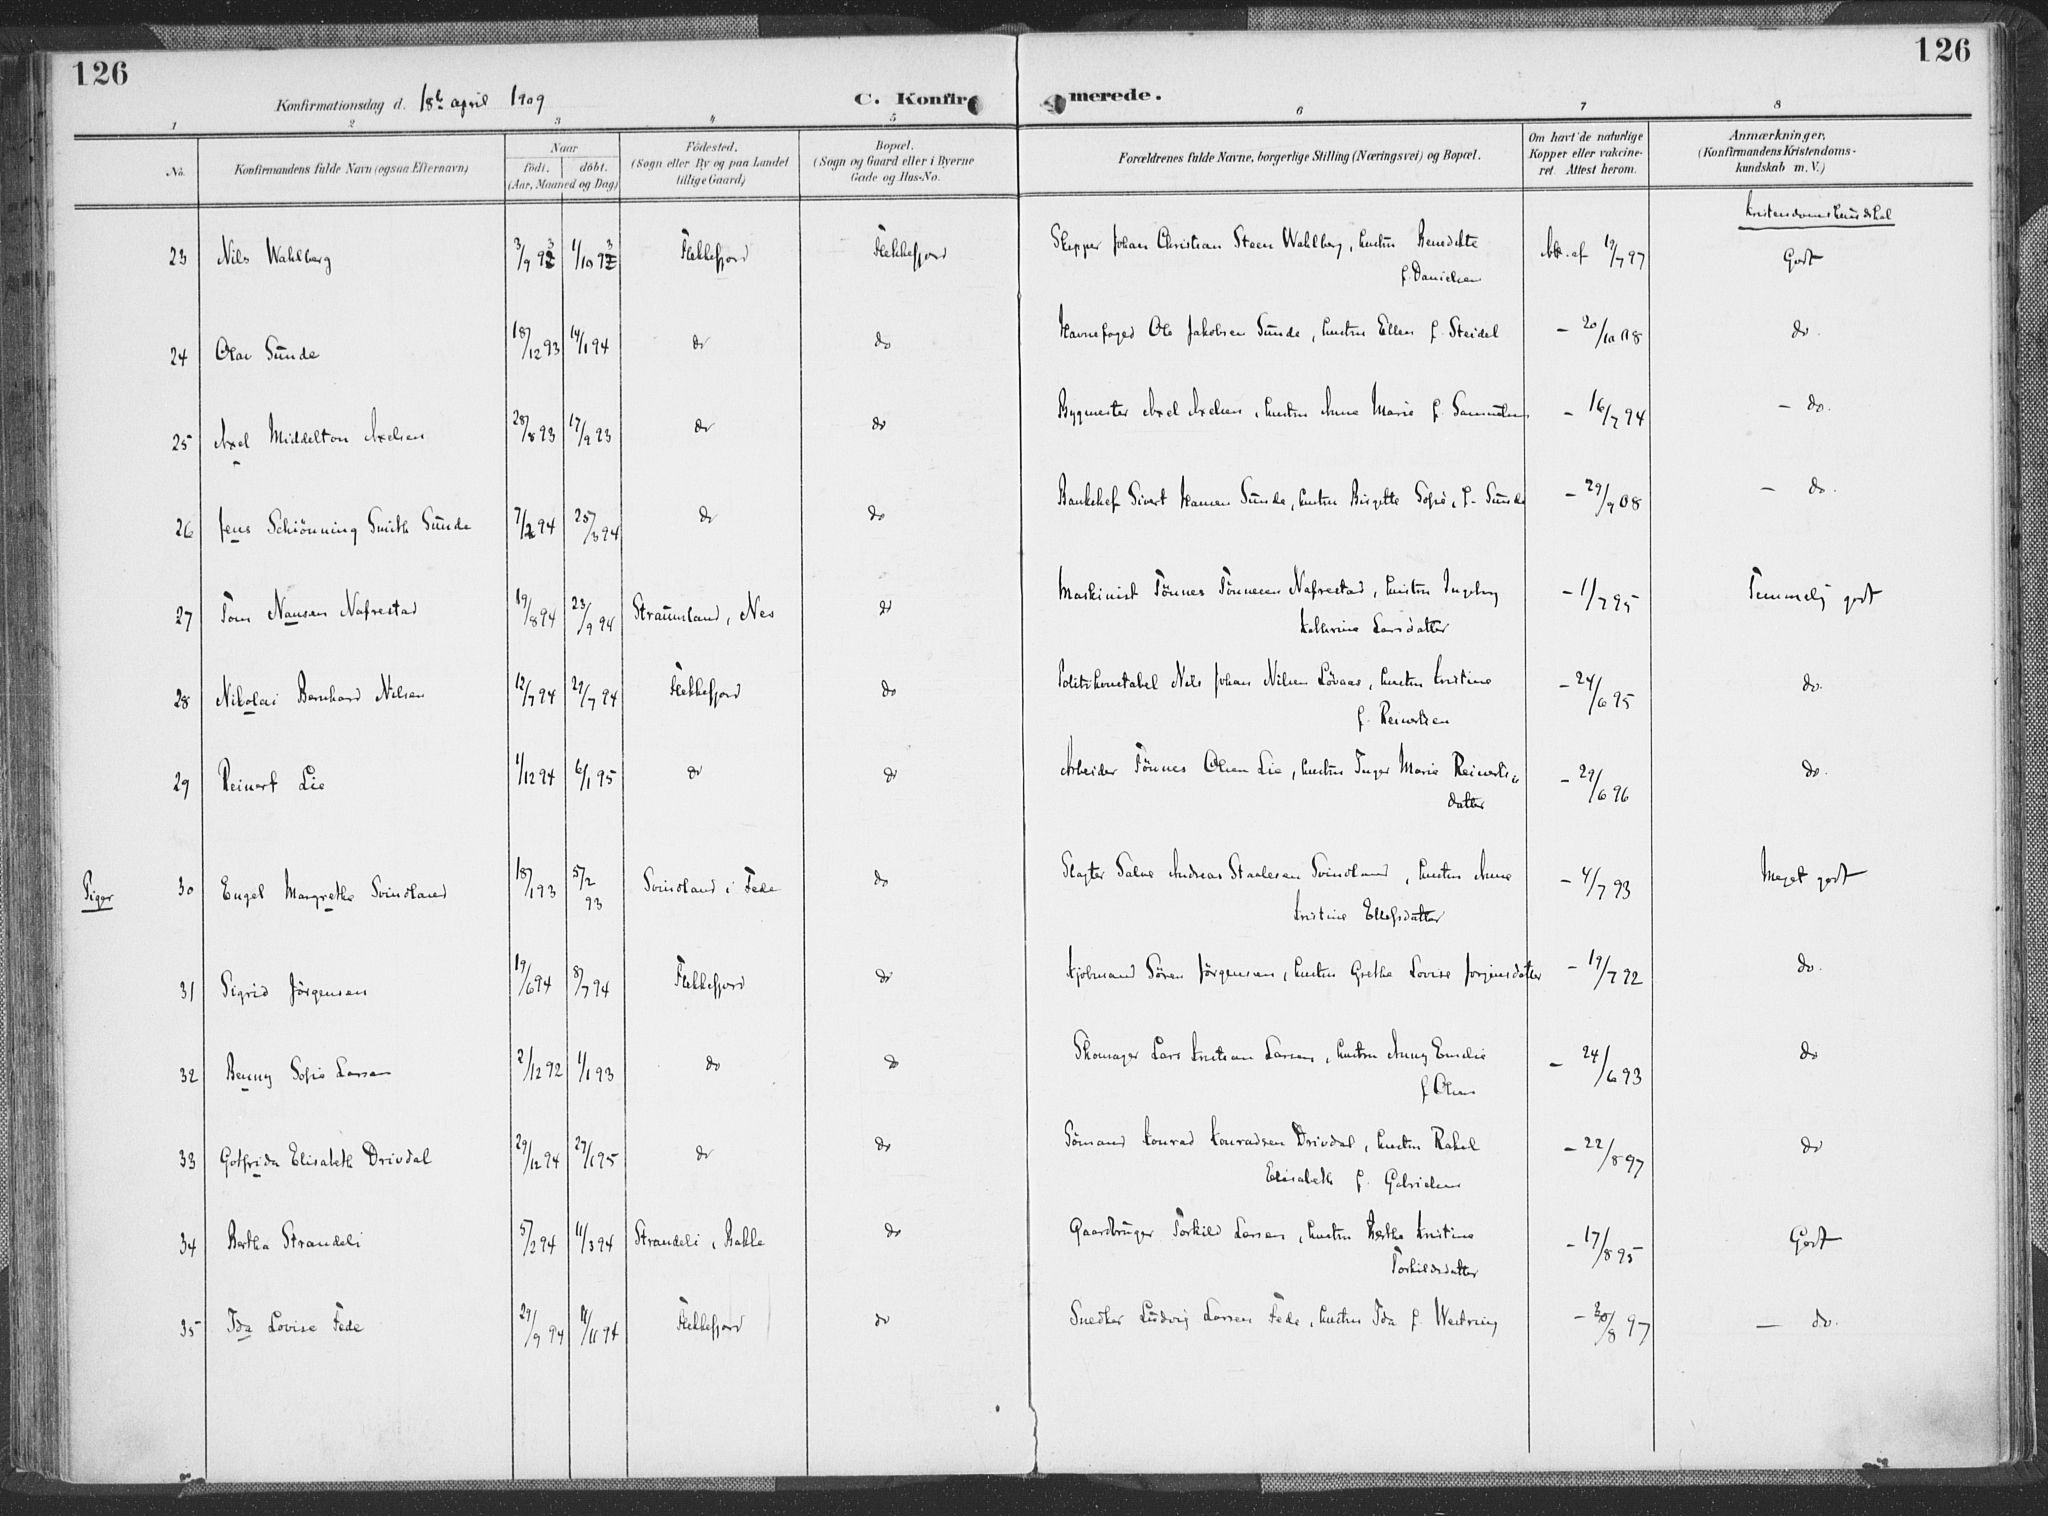 126
126
Konfirmationsdag d. 18de april 1909
C. Konfir merede.
1 2 3 4 5 6 7 8
No.
Konfirmandens fulde Navn (ogsaa Efternavn)
Naar
födt. döbt.
(Aar, Maaned og Dag)
Födested.
(Sogn eller By og paa Landet
tillige Gaard)
Bopæl.
(Sogn og Gaard eller i Byerne
Gade og Hus-No.
Forældrenes fulde Navne, borgerlige Stilling (Næringsvei) og Bopæl.
Om havt de naturlige
Kopper eller vakcine-
ret. Attest herom.
Anmærkninger,
(Konfirmandens Kristendoms-
kundskab m. V.)
Kristendomskundskab
23 Nils Wahlberg 3/9 93 1/10 93 Flekkefjord Flekkefjord Skipper Johan Christian Steen Wahlberg, hustru Benedikte Att. af 19/7 97 Godt
f. Danielsen
24 Olav Sunde 18/12 93 14/1 94 do do Havnefoged Ole Jakobsen Sunde, hustru Ellen f. Steidel – 20/10 08 do.
25 Axel Middelton Axelsen 28/8 93 17/9 93 do do Bygmester Axel Axelsen, hustru Anne Marie f. Samuelsen – 16/7 94 – do.
26 Jens Schiönning Smith Sunde 7/2 94 25/3 94 do do Bankchef Sivert Hansen Sunde, hustru Birgitte Sofie, f. Sunde – 29/9 08 – do.
27 Tom Nansen Nafrestad 19/8 94 23/9 94 Straumland, Nes do Maskinist Tönnes Tönnesen Nafrestad, hustru Ingeborg – 1/7 95 Temmelig godt
Kathrine Larsdatter
28 Nikolai Bernhard Nilsen 12/7 94 29/7 94 Flekkefjord do Politikonstabel Nils Johan Nilsen Lövaas, hustru Kristine – 24/6 95 do.
f. Reinertsen
29 Reinert Lie 1/12 94 6/1 95 do do Arbeider Tönnes Olsen Lie, hustru Inger Marie Reinerts- – 29/6 96 do.
datter
Piger 30 Engel Margrethe Svindland 18/1 93 5/2 93 Svindland i Fede do Slagter Salve Andreas Staalesen Svindland, hustru Anne – 4/7 93 Meget godt
Kristine Ellefsdatter
31 Sigrid Jörgensen 19/6 94 8/7 94 Flekkefjord do Kjöbmand Sören Jörgensen, hustru Grethe Lovise Jörgensdatter – 19/7 92 do.
32 Benny Sofie Larsen 2/12 92 1/1 93 do do Skomager Lars Kristian Larsen, hustru Anny Emilie – 24/6 93 do
f. Olsen
33 Gotfrida Elisabeth Drivdal 29/12 94 27/1 95 do do Sömand Konrad Konradsen Drivdal, hustru Rakel – 22/8 97 do
Elisabeth f. Gabrielsen
34 Bertha Strandeli 5/2 94 11/3 94 Strandeli, Bakke do Gaardbruger Torkild Larsen, hustru Berthe Kristine – 17/8 95 Godt
Torkildsdatter
35 Ida Lovise Fede 29/9 94 11/11 94 Flekkefjord do Snedker Ludvig Larsen Fede, hustru Ida f. Westring – 30/8 97 – do.